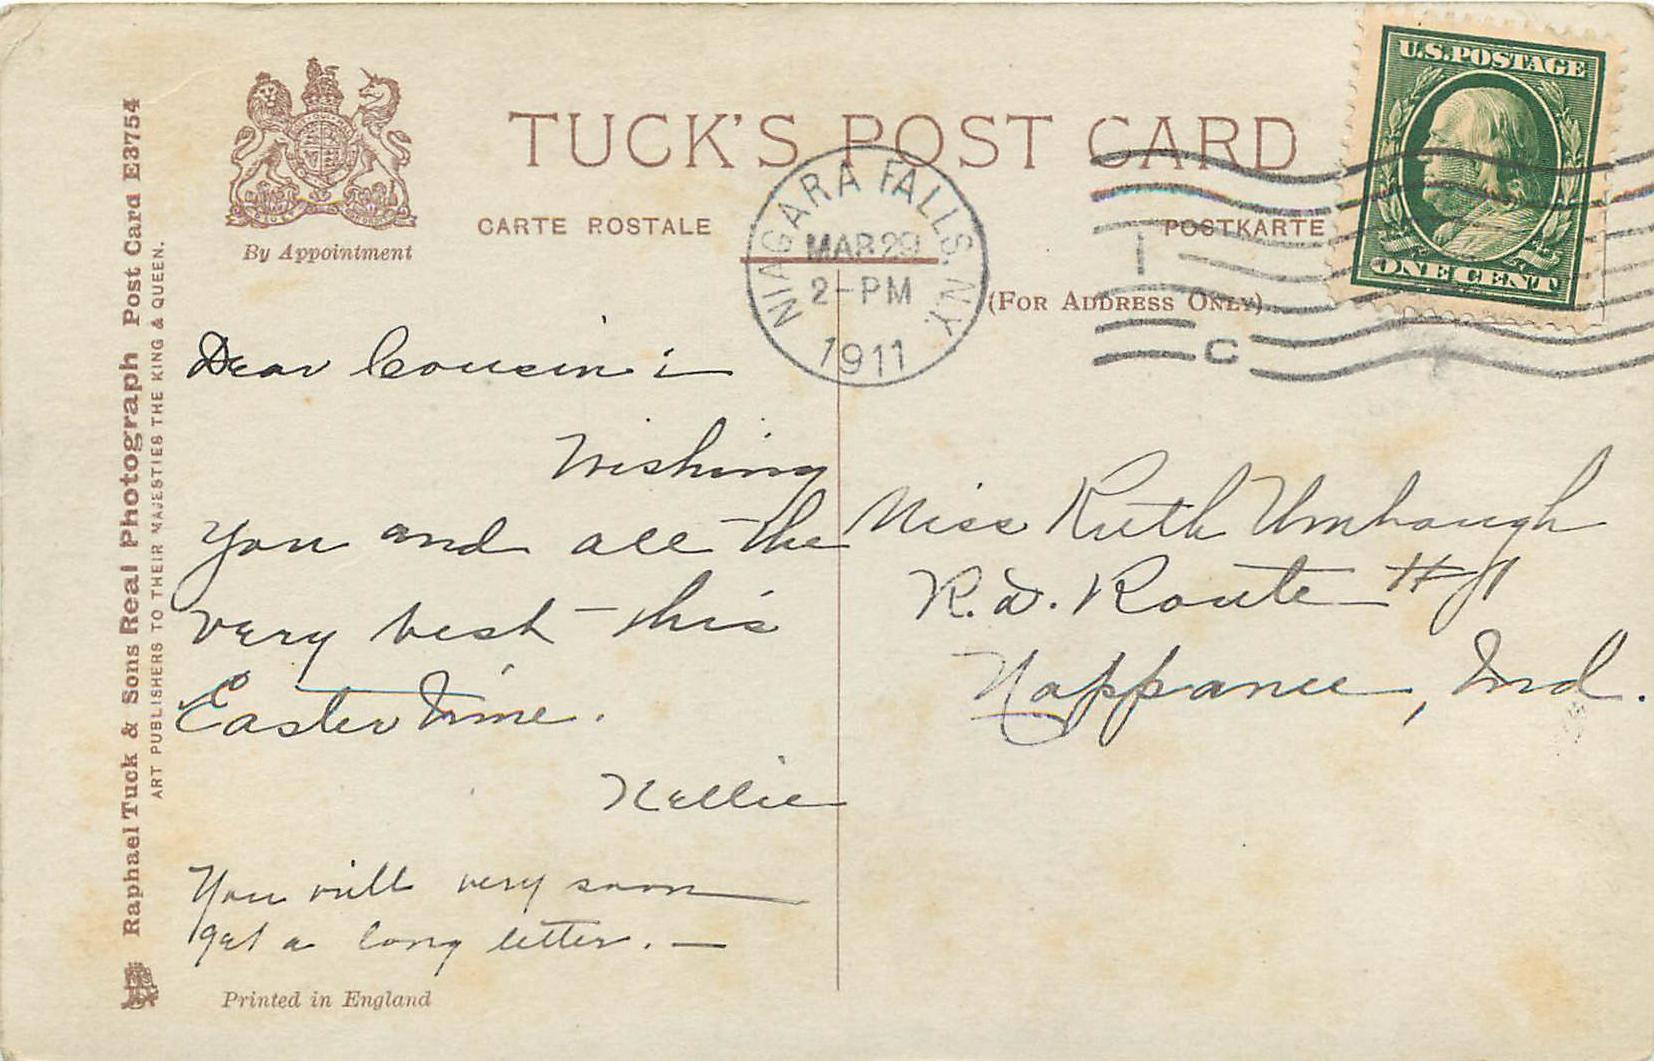 TUCK'S POST CARD
CARTE POSTALE
POSTKARTE
(FOR ADDRESS ONLY)
By Appointment
NIAGARA FALLS. N.Y.
MAR 29
2-PM
1911
U.S. POSTAGE
ONE CENT
1
C
Dear Cousin :-
Wishing
you and all the
very best this
Easter time.
Nellie
You will very soon
get a long letter. —
Miss Ruth Umbaugh
R.D. Route #1
Nappanee, Ind.
Raphael Tuck & Sons Real Photograph Post Card E3754
ART PUBLISHERS TO THEIR MAJESTIES THE KING & QUEEN.
Printed in England